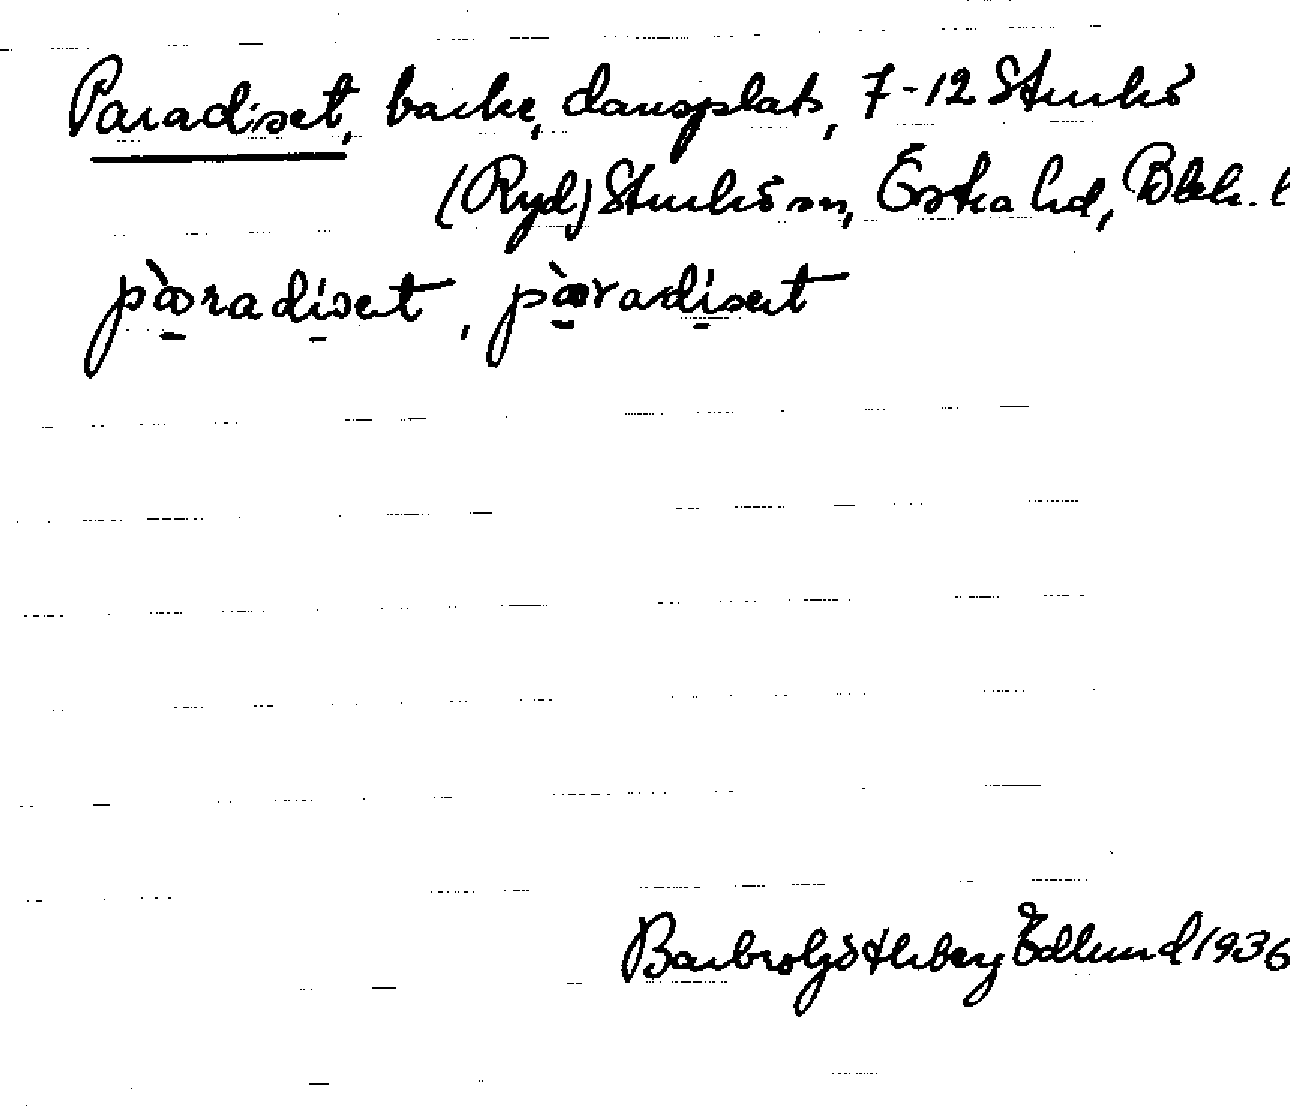 Paradiset, backe, dansplats, 7-12 Sturkö
(Ryd) Sturkö sn, Östra hd, Blek. l
pàradiset, pàradiset
Barbro Göthberg Edlund 1936